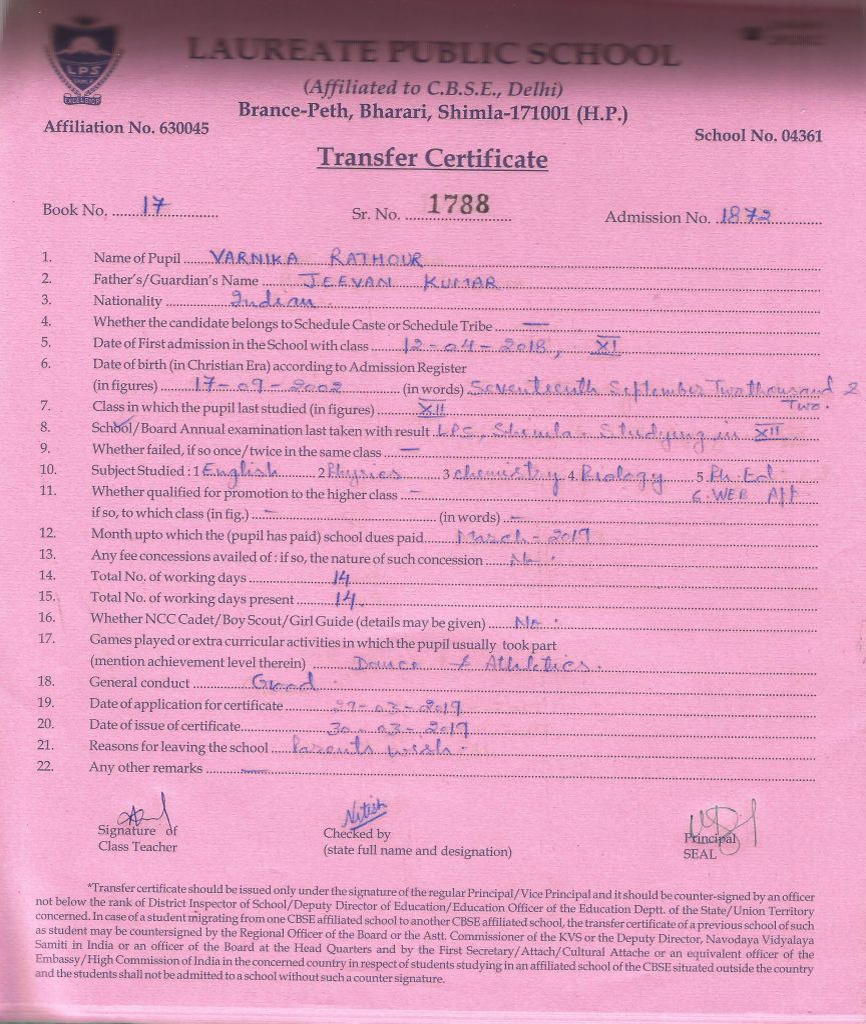 LPS
EXCELSIOR
LAUREATE PUBLIC SCHOOL
(Affiliated to C.B.S.E., Delhi)
Brance-Peth, Bharari, Shimla-171001 (H.P.)
Affiliation No. 630045 School No. 04361
Transfer Certificate
Book No. 17 Sr. No. 1788 Admission No. 1872
1. Name of Pupil VARNIKA RATHOUR
2. Father's/Guardian's Name JEEVAN KUMAR
3. Nationality Indian
4. Whether the candidate belongs to Schedule Caste or Schedule Tribe —
5. Date of First admission in the School with class 12-04-2018, XI
6. Date of birth (in Christian Era) according to Admission Register
(in figures) 17-09-2002 (in words) Seventeenth September Two thousand &
Two.
7. Class in which the pupil last studied (in figures) XII
8. School/Board Annual examination last taken with result LPS, Shimla. Studying in XII
9. Whether failed, if so once/twice in the same class —
10. Subject Studied : 1 English 2 Physics 3 chemistry 4. Biology 5. Ph. Ed
6. WEB
11. Whether qualified for promotion to the higher class –
if so, to which class (in fig.) – (in words) –
12. Month upto which the (pupil has paid) school dues paid March - 2019
13. Any fee concessions availed of : if so, the nature of such concession No.
14. Total No. of working days 14
15. Total No. of working days present 14.
16. Whether NCC Cadet/Boy Scout/Girl Guide (details may be given) No.
17. Games played or extra curricular activities in which the pupil usually took part
(mention achievement level therein) Dance & Athletics.
18. General conduct Good
19. Date of application for certificate 29-03-2019
20. Date of issue of certificate 30-03-2019
21. Reasons for leaving the school Parents wish.
22. Any other remarks —
Nitish
Signature of Checked by Principal
Class Teacher (state full name and designation) SEAL
*Transfer certificate should be issued only under the signature of the regular Principal/Vice Principal and it should be counter-signed by an officer
not below the rank of District Inspector of School/Deputy Director of Education/Education Officer of the Education Deptt. of the State/Union Territory
concerned. In case of a student migrating from one CBSE affiliated school to another CBSE affiliated school, the transfer certificate of a previous school of such
as student may be countersigned by the Regional Officer of the Board or the Astt. Commissioner of the KVS or the Deputy Director, Navodaya Vidyalaya
Samiti in India or an officer of the Board at the Head Quarters and by the First Secretary/Attach/Cultural Attache or an equivalent officer of the
Embassy/High Commission of India in the concerned country in respect of students studying in an affiliated school of the CBSE situated outside the country
and the students shall not be admitted to a school without such a counter signature.